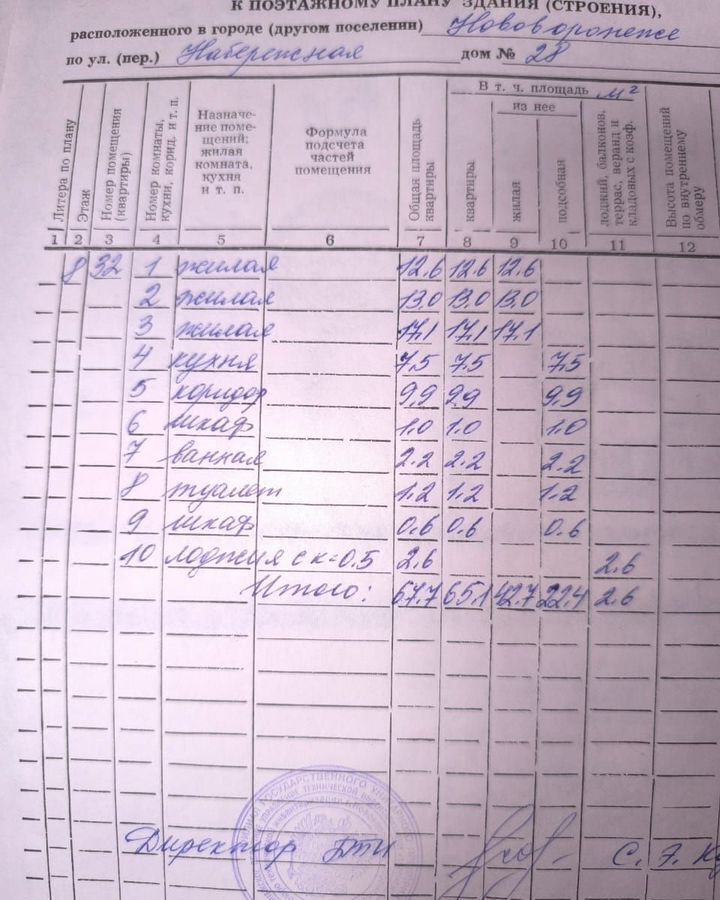 К ПОЭТАЖНОМУ ПЛАНУ ЗДАНИЯ (СТРОЕНИЯ),
расположенного в городе (другом поселении) Нововоронеже
по ул. (пер.) Набережная дом № 28
Литера по плану
Этаж
Номер помещения (квартиры)
Номер комнаты, кухни, корид. и т. п.
Назначе-
ние поме-
щений:
жилая
комната,
кухня
и т. п.
Формула
подсчета
частей
помещения
Общая площадь квартиры
В т. ч. площадь м²
из нее
квартиры
жилая
подсобная
лоджий, балконов, террас, веранд и кладовых с коэф.
Высота помещений по внутреннему обмеру
1 2 3 4 5 6 7 8 9 10 11 12
8 32 1 жилая 12.6 12.6 12.6
2 жилая 13.0 13.0 13.0
3 жилая 17.1 17.1 17.1
4 кухня 7.5 7.5 7.5
5 коридор 9.9 9.9 9.9
6 шкаф 1.0 1.0 1.0
7 ванная 2.2 2.2 2.2
8 туалет 1.2 1.2 1.2
9 шкаф 0.6 0.6 0.6
10 лоджия с к=0.5 2.6 2.6
Итого: 67.7 65.1 42.7 22.4 2.6
Директор БТИ С. Э.